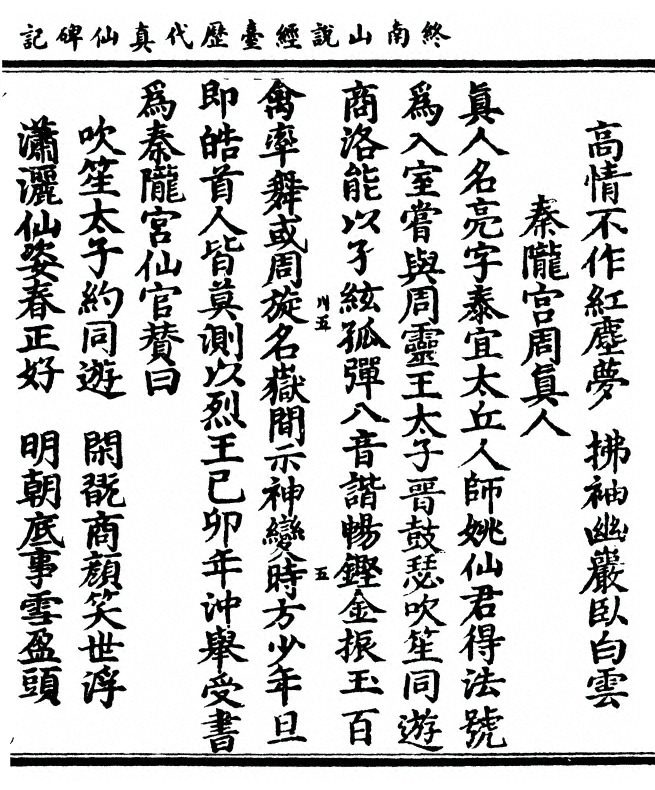 終南山說經臺歷代真仙碑記
高情不作紅塵夢　拂袖幽巖臥白雲
秦隴宮周眞人
眞人名亮字泰宜太丘人師姚仙君得法號
爲入室嘗與周靈王太子晉鼓瑟吹笙同遊
商洛能以孑絃孤彈八音諧暢鏗金振玉百
川五
五
禽率舞或周旋名嶽間示神變時方少年旦
即皓首人皆莫測以烈王已卯年沖舉受書
爲秦隴宮仙官賛曰
吹笙太子約同遊　閑翫商顏笑世浮
瀟灑仙姿春正好　明朝底事雪盈頭